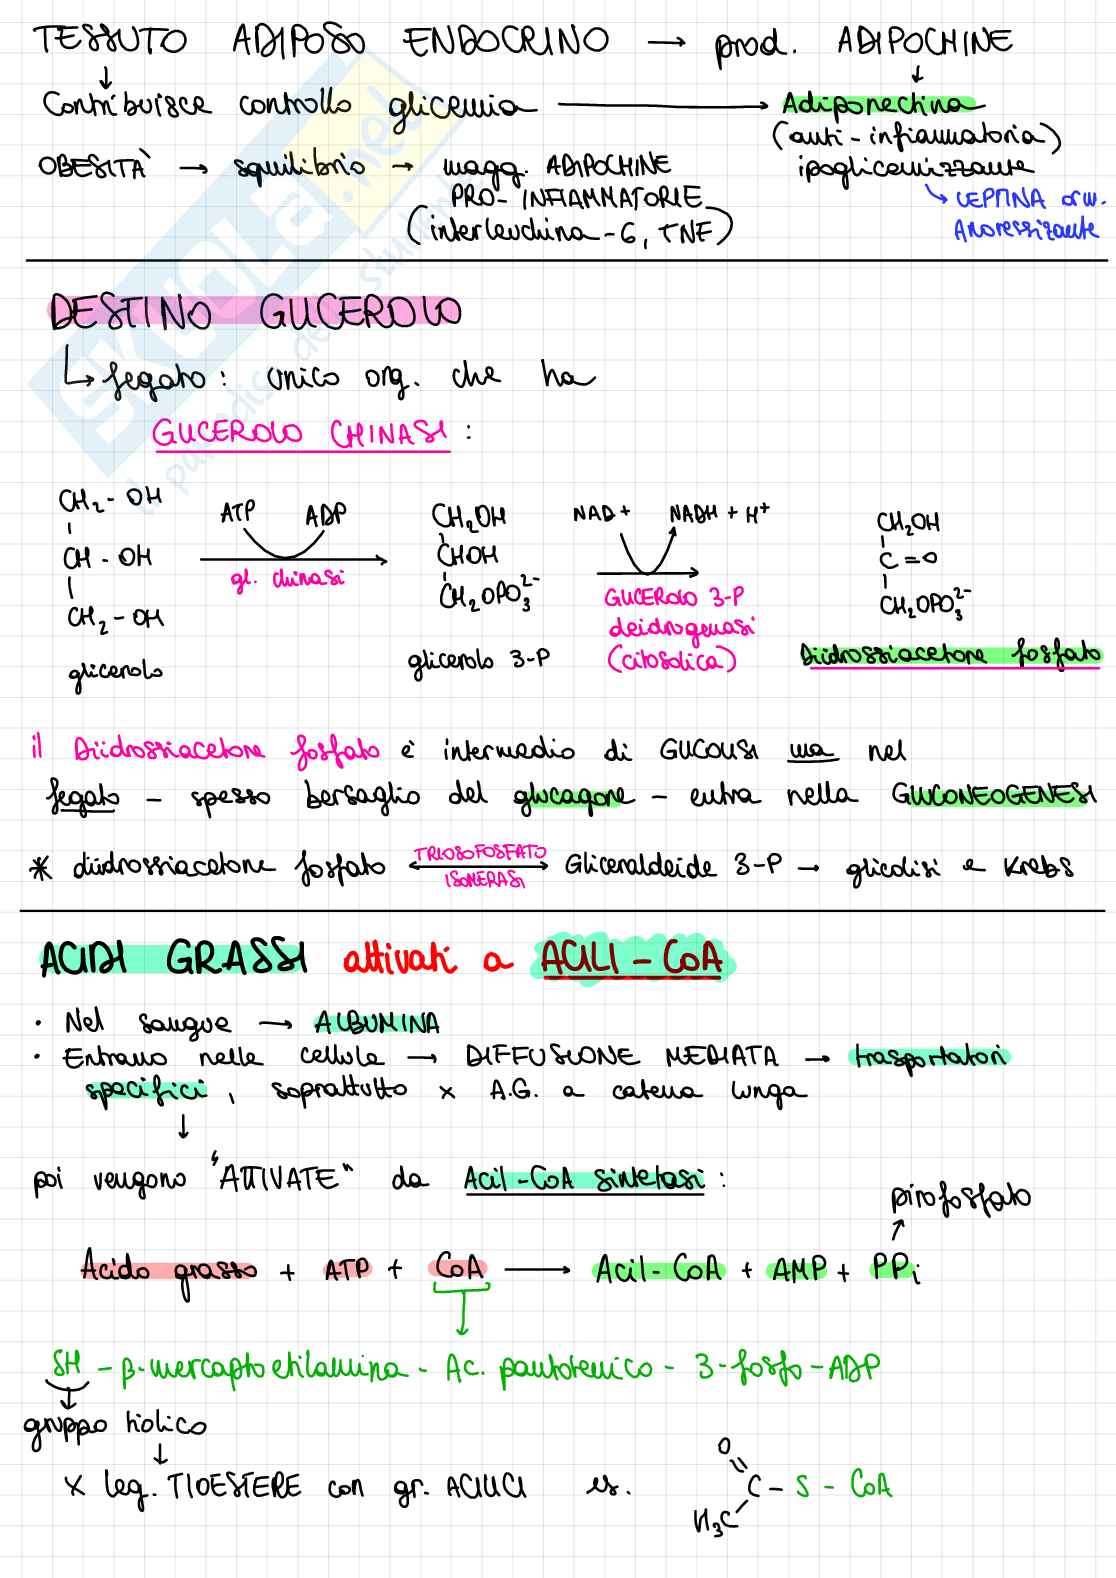 TESSUTO ADIPOSO ENDOCRINO → prod. ADIPOCHINE
↓ ↓
Contribuisce controllo glicemia → Adiponectina
(anti-infiammatoria)
OBESITÀ → squilibrio → magg. ADIPOCHINE ipoglicemizzante
PRO-INFIAMMATORIE ↳ LEPTINA orm.
(interleuchina-6, TNF) Anoressizzante
DESTINO GLICEROLO
↳ fegato: unico org. che ha
GLICEROLO CHINASI:
CH₂-OH ATP ADP CH₂OH NAD+ NADH + H⁺ CH₂OH
CH-OH → CHOH → C=O
gl. chinasi
CH₂-OH CH₂OPO₃²⁻ GLICEROLO 3-P CH₂OPO₃²⁻
deidrogenasi
glicerolo glicerolo 3-P (citosolica) Diidrossiacetone fosfato
il Diidrossiacetone fosfato è intermedio di GLICOLISI ma nel
fegato - spesso bersaglio del glucagone - entra nella GLUCONEOGENESI
* diidrossiacetone fosfato ⟷ TRIOSOFOSFATO ISOMERASI Gliceraldeide 3-P → glicolisi e Krebs
ACIDI GRASSI attivati a ACILI-CoA
· Nel sangue → ALBUMINA
· Entrano nelle cellule → DIFFUSIONE MEDIATA → trasportatori
specifici, soprattutto x A.G. a catena lunga
↓
poi vengono "ATTIVATE" da Acil-CoA sintetasi:
pirofosfato
Acido grasso + ATP + CoA → Acil-CoA + AMP + PPi
SH - β-mercaptoetilamina - Ac. pantotenico - 3-fosfo-ADP
gruppo tiolico
↓
x leg. TIOESTERE con gr. ACILICI es. O
C - S - CoA
H₃C
SKUOLA.net